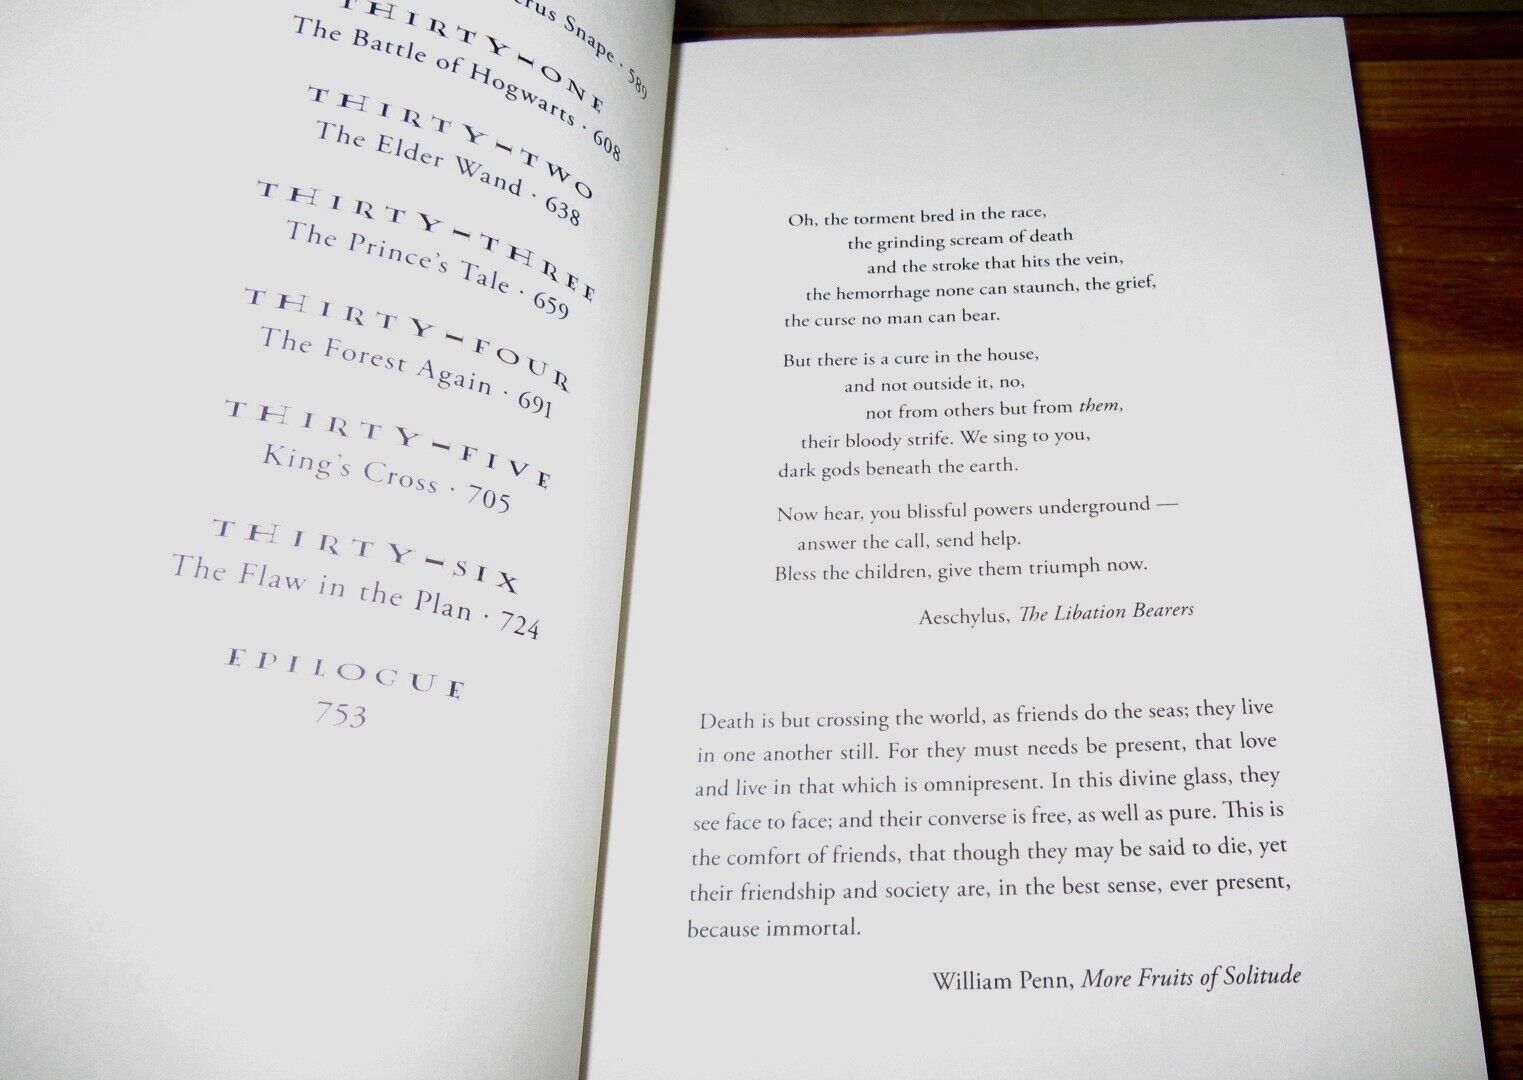 erus Snape · 589
THIRTY-ONE
The Battle of Hogwarts · 608
THIRTY-TWO
The Elder Wand · 638
THIRTY-THREE
The Prince's Tale · 659
THIRTY-FOUR
The Forest Again · 691
THIRTY-FIVE
King's Cross · 705
THIRTY-SIX
The Flaw in the Plan · 724
EPILOGUE
753
Oh, the torment bred in the race,
the grinding scream of death
and the stroke that hits the vein,
the hemorrhage none can staunch, the grief,
the curse no man can bear.
But there is a cure in the house,
and not outside it, no,
not from others but from them,
their bloody strife. We sing to you,
dark gods beneath the earth.
Now hear, you blissful powers underground —
answer the call, send help.
Bless the children, give them triumph now.
Aeschylus, The Libation Bearers
Death is but crossing the world, as friends do the seas; they live
in one another still. For they must needs be present, that love
and live in that which is omnipresent. In this divine glass, they
see face to face; and their converse is free, as well as pure. This is
the comfort of friends, that though they may be said to die, yet
their friendship and society are, in the best sense, ever present,
because immortal.
William Penn, More Fruits of Solitude